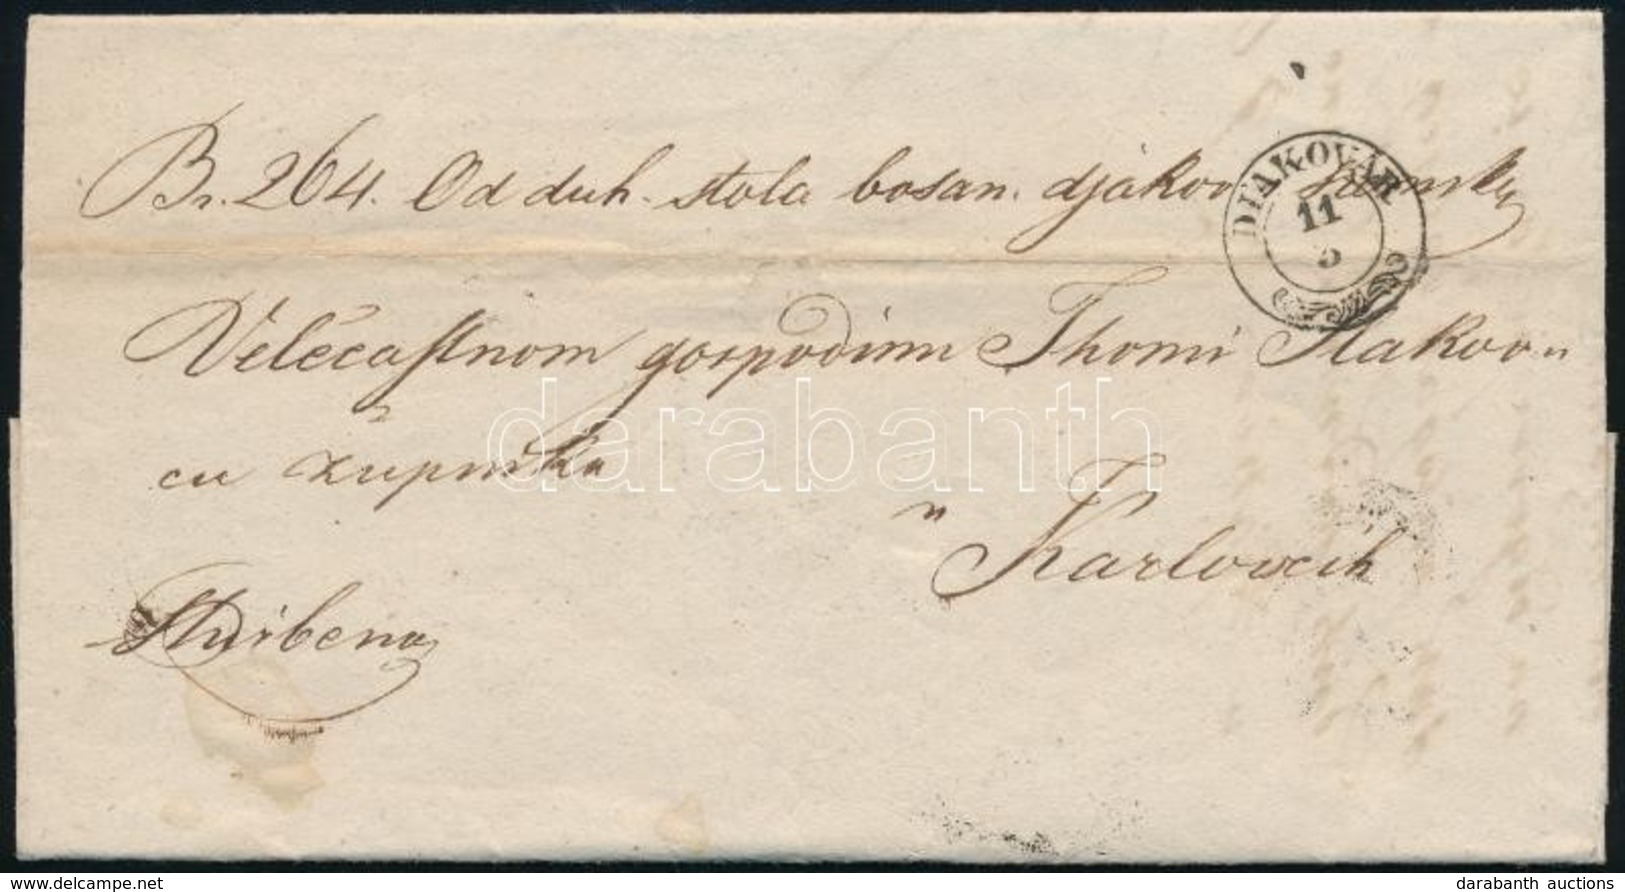 Br. 264. Od duh. stola bosan. djakov.
DIAKOVÁR
11
5
Velečastnom gospodinu Thomi
cu župniku
u
Karlovcih
Službena
darabanth
delcampe.net
darabanth auctions